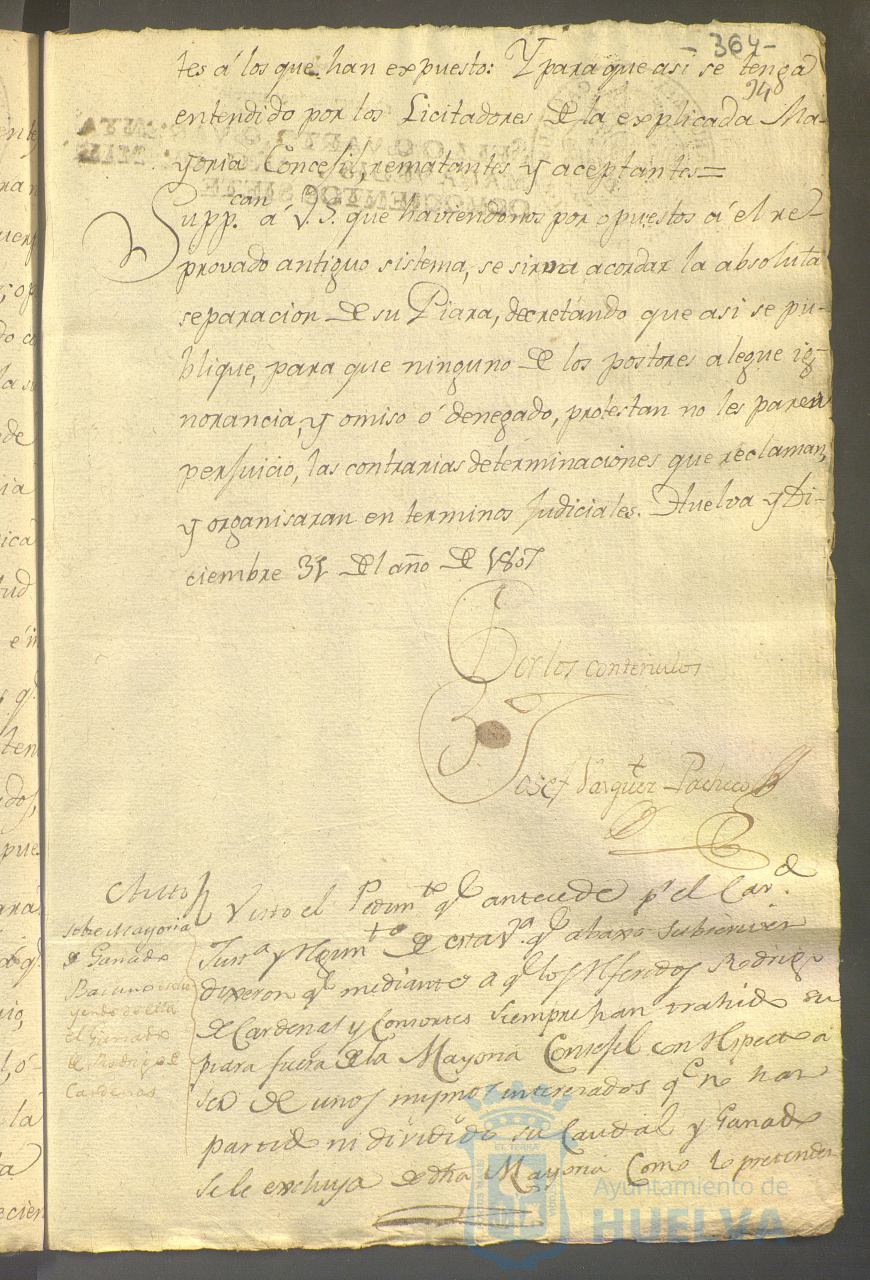 - 364 -
94
tes á los que han expuesto: Y para que asi se tenga
entendido por los Licitadores de la explicada Ma-
yoria Concejil, rematantes y aceptantes=
Suppcan. á V. S. que haviendonos por opuestos á el re-
provado antiguo sistema, se sirva acordar la absoluta
separacion de su Piara, decretando que asi se pu-
blique, para que ninguno de los postores alegue ig-
norancia, y omiso ó denegado, protestan no les paren
perjuicio, las contrarias determinaciones que reclaman,
y organisaran en terminos Judiciales. Huelva y Di-
ciembre 31 del año de 1807
Por los contenidos
Josef Vasquez Pacheco
Autto
sobre Mayoria
de Ganado
Bacuno
el Ganado
de Rodrigo de
Cardenas
Visto el Pedimto qe antecede pr el
Justa y Regimto de esta Va qe abaxo subscriven
dixeron qe mediante a qe los referidos Rodrigo
de Cardenas y Consortes siempre han trahido su
piara fuera de la Mayoria Consejil con respecto á
ser de unos mismos interesados qe no han
partido ni dividido su Caudal y Ganado
se le excluya de dha Mayoria como lo pretenden
Ayuntamiento de
HUELVA